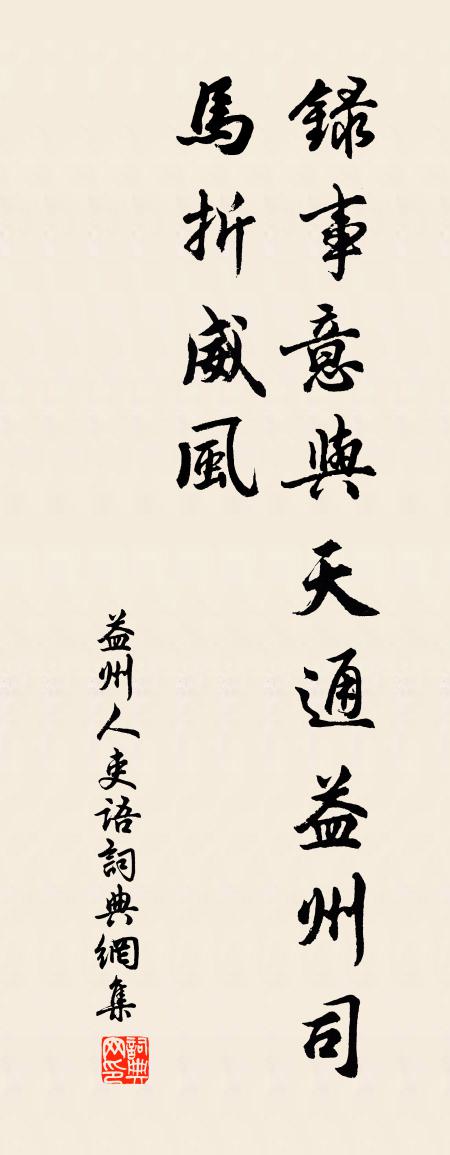 錄事意與天通益州司
馬折威風
益州人吏語詞典網集
詞典網印